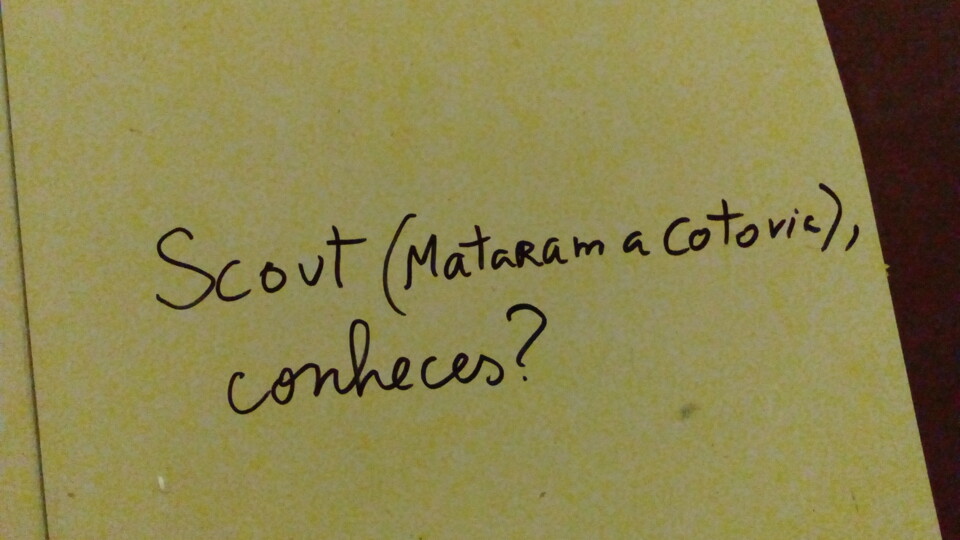 Scout (Mataram a cotovia),
conheces?